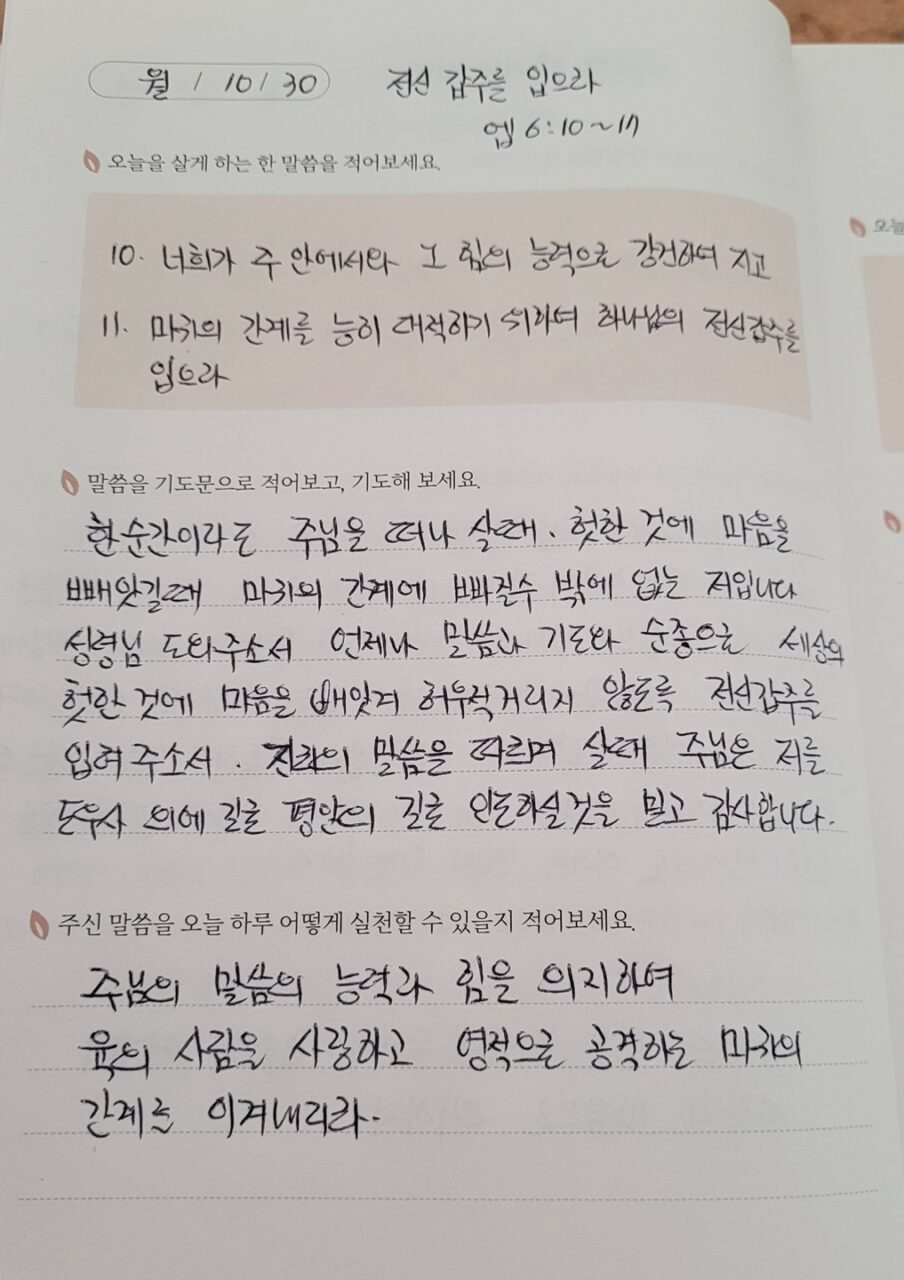 월 / 10 / 30 전신 갑주를 입으라
엡 6:10~17
오늘을 살게 하는 한 말씀을 적어보세요.
10. 너희가 주 안에서와 그 힘의 능력으로 강건하여 지고
11. 마귀의 간계를 능히 대적하기 위하여 하나님의 전신갑주를
입으라
말씀을 기도문으로 적어보고, 기도해 보세요.
한순간이라도 주님을 떠나 살때. 헛한 것에 마음을
빼앗길때 마귀의 간계에 빠질수 밖에 없는 저입니다
성령님 도와주소서 언제나 말씀과 기도와 순종으로 세상의
헛한 것에 마음을 빼앗겨 허우적거리지 않도록 전신갑주를
입혀 주소서. 진리의 말씀을 따르며 살때 주님은 저를
도우사 의에 길로 평안의 길로 인도하실것을 믿고 감사합니다.
주신 말씀을 오늘 하루 어떻게 실천할 수 있을지 적어보세요.
주님의 말씀의 능력과 힘을 의지하여
육의 사람을 사랑하고 영적으로 공격하는 마귀의
간계를 이겨내리라.
오늘